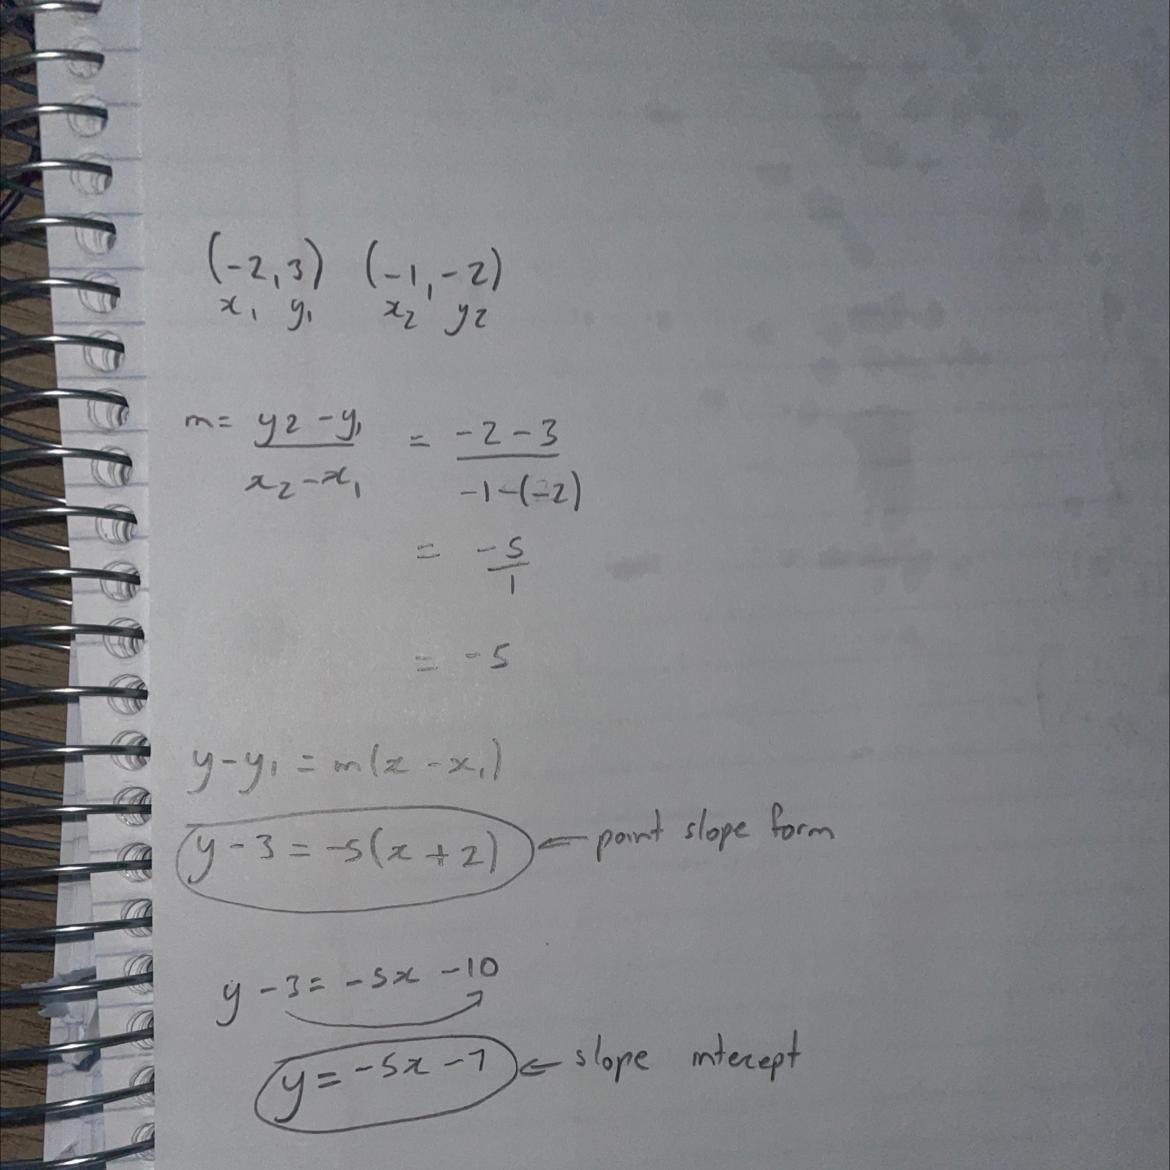 (-2, 3) (-1, -2)
x₁ y₁ x₂ y2
m = y2 - y₁ / x₂ - x₁ = -2 - 3 / -1 - (-2)
= -5/1
= -5
y - y₁ = m(x - x₁)
y - 3 = -5(x + 2) ← point slope form
y - 3 = -5x - 10
y = -5x - 7 ← slope intercept